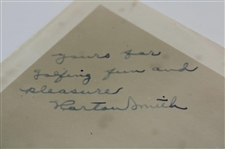 yours for
golfing fun and
pleasure
Horton Smith